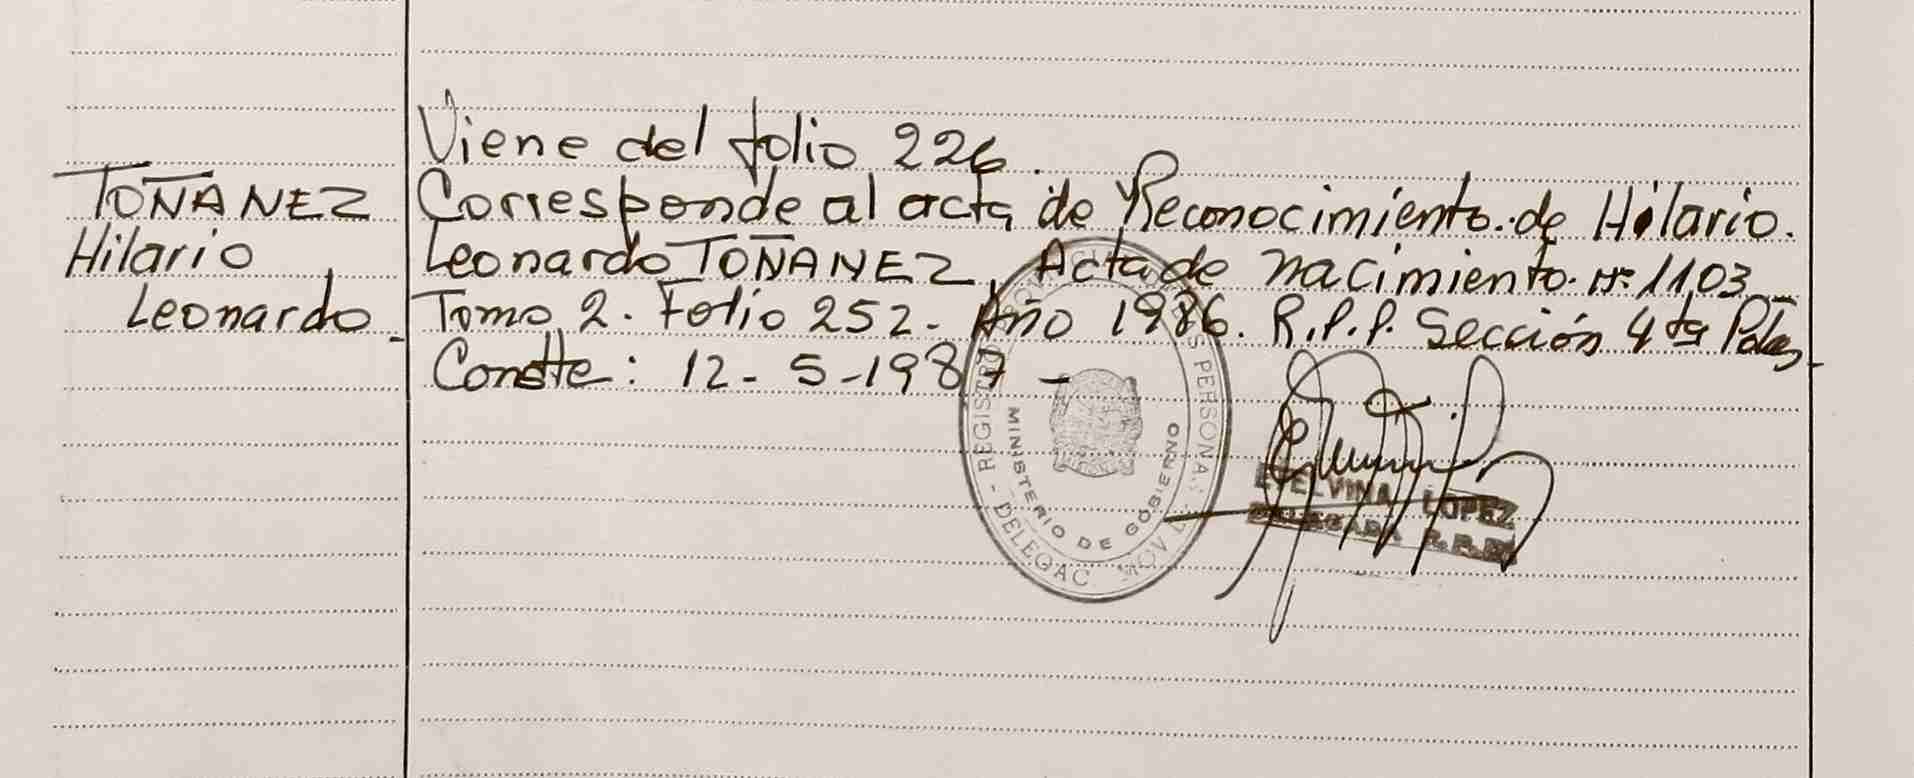 TOÑANEZ
Hilario
Leonardo.
Viene del folio 226.
Corresponde al acta de Reconocimiento de Hilario.
Leonardo TOÑANEZ, Acta de nacimiento. Nº 1103
Tomo 2. Folio 252. Año 1986. R.P.P. Sección 4ta Pdas.
Conste: 12-5-1987-
REGISTRO PERSONAS
DELEGAC MOVIL
MINISTERIO DE GOBIERNO
ETELVINA LOPEZ
DELEGADA